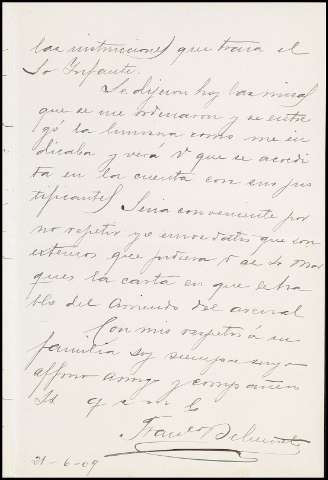 las instrucciones que traia el
Sr Infante.
Se dijeron hoy las misas
que se me ordenaron y se entre
gó la limosna como me in
dicaba y verá V que se acredi
ta en la cuenta con sus jus
tificantes Seria conveniente por
no repetir yo enviar datos que con
extenso que pidiera V al Sr Mar
ques la carta en que se ha
bla del Arriendo del arenal
Con mis respetos á su
familia soy siempre suyo
affmo amigo y compañero
q s m b
Franco
21-6-09